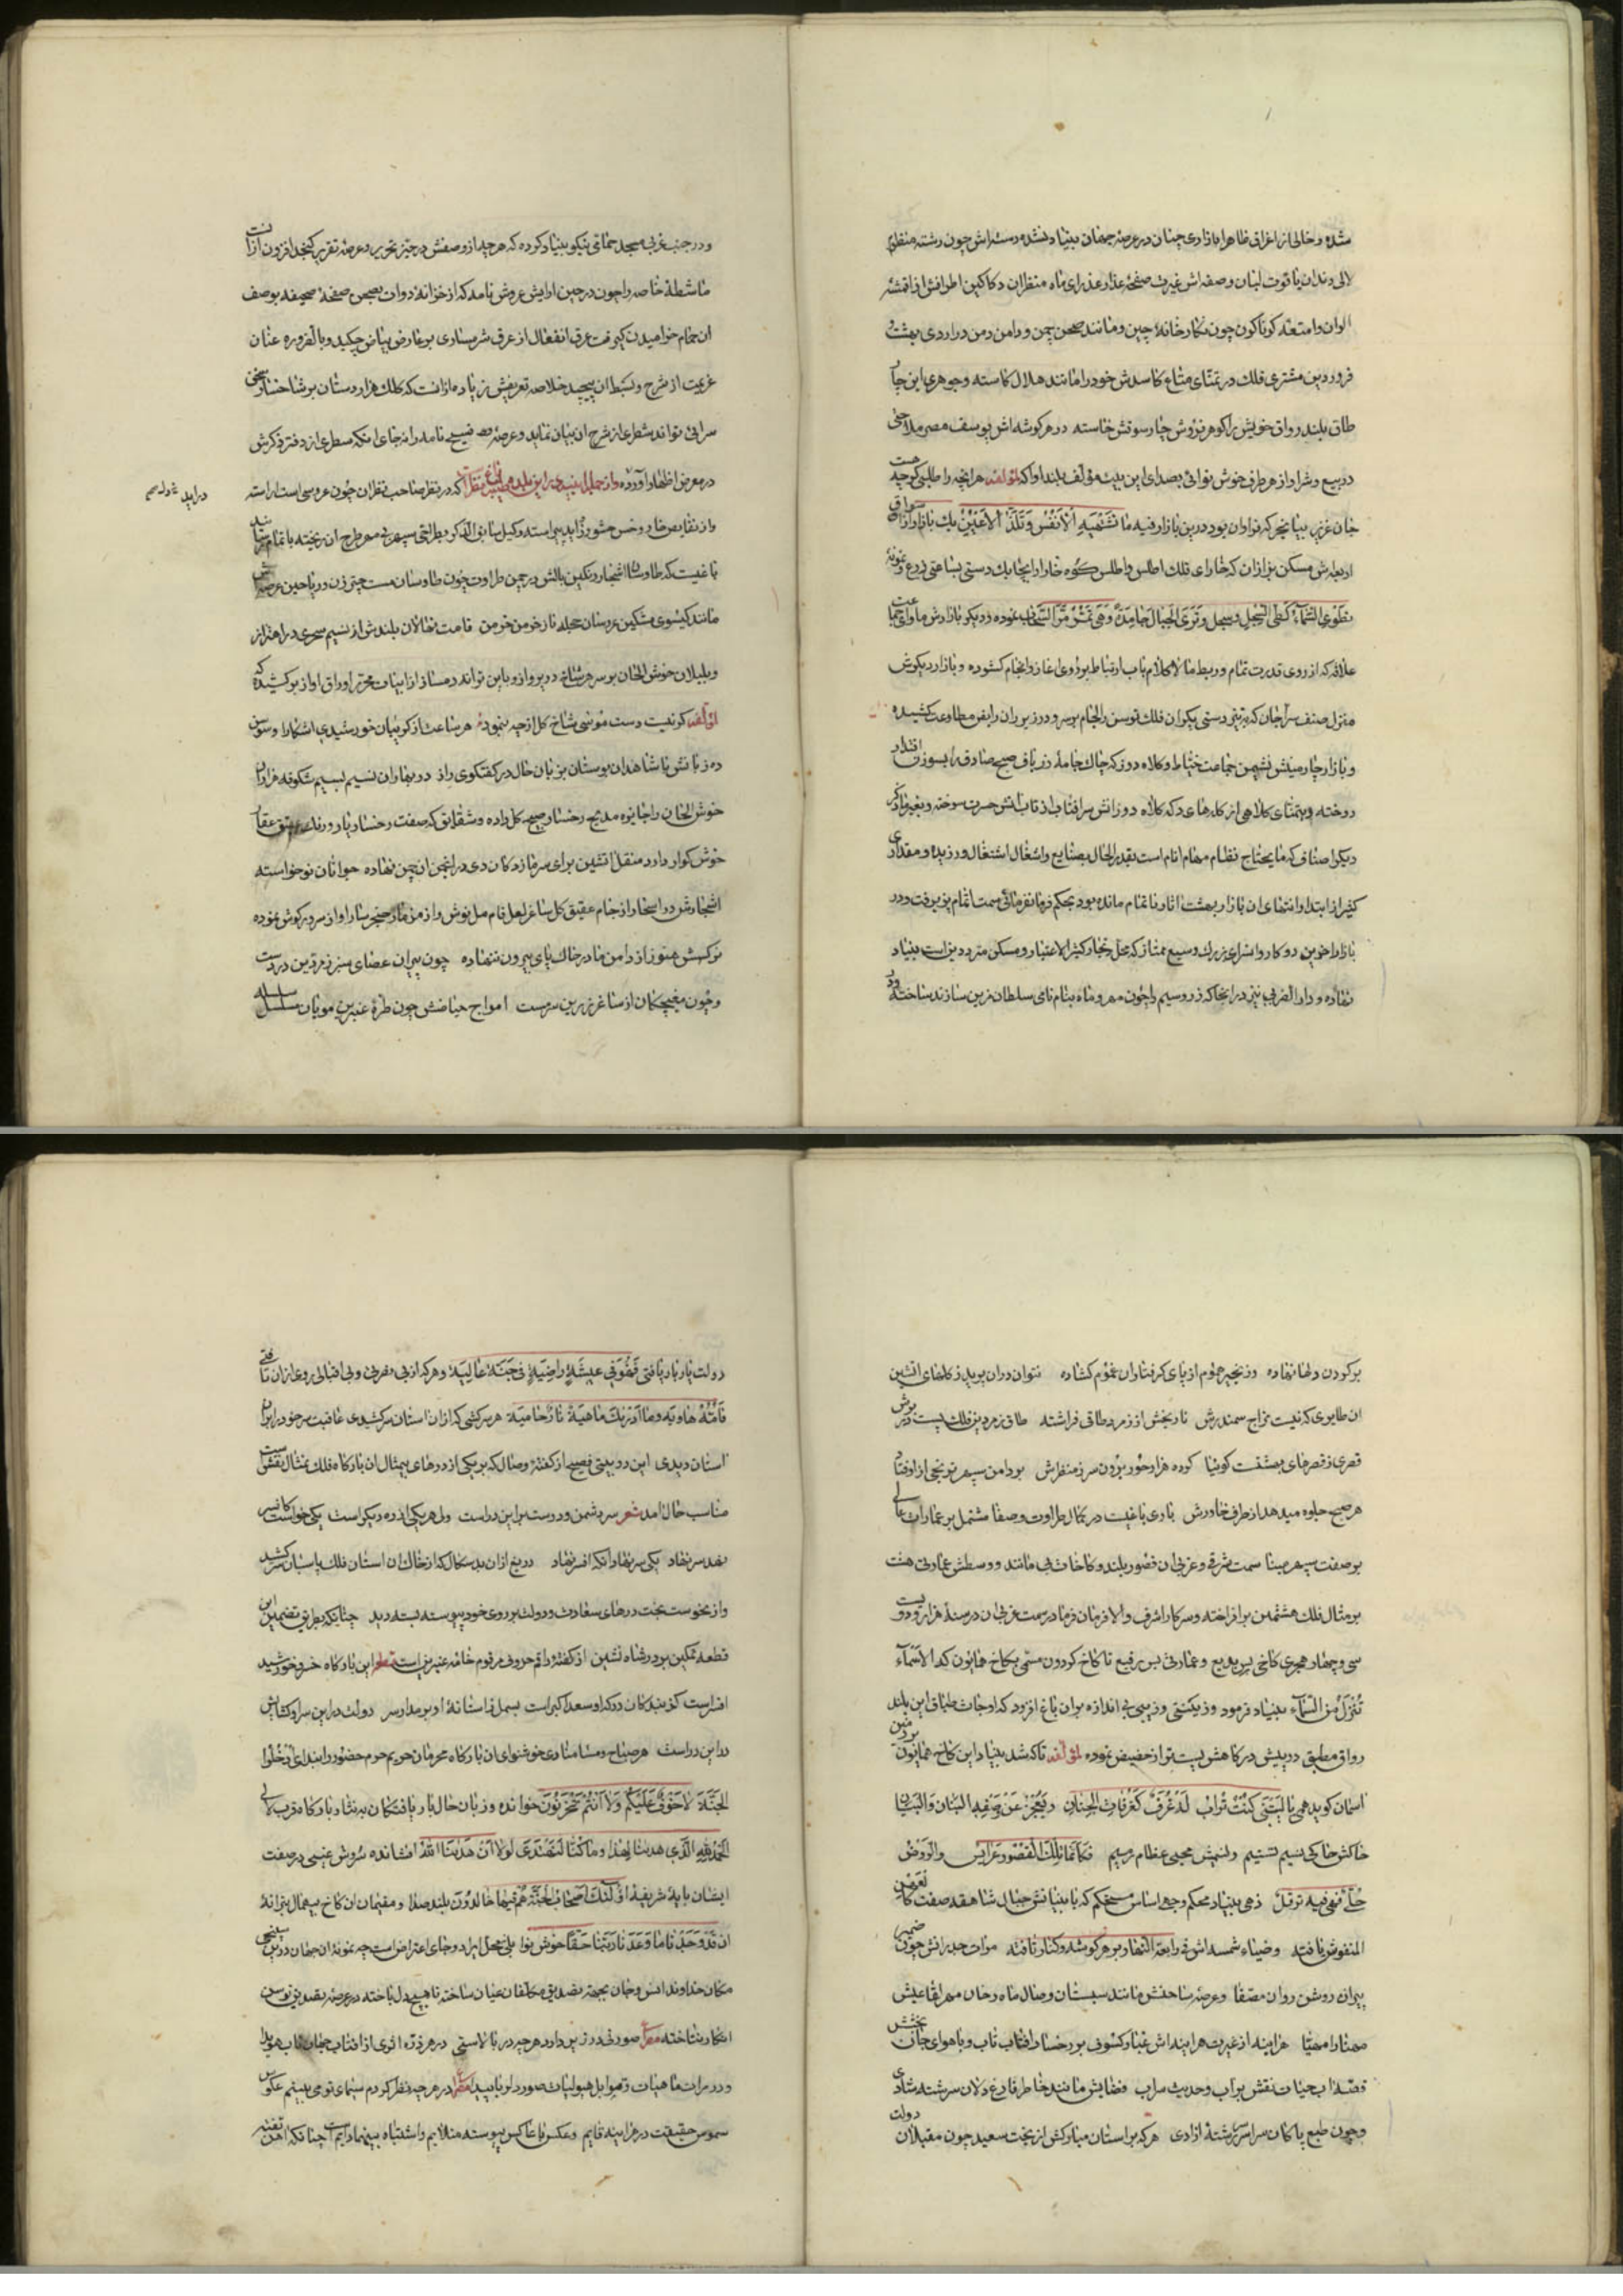 شده و خالی از اغراق ظاهرا بازاری چنان در عرصهٔ جهان بنیاد نشده دسته اش چون رشته منظوم
لالی دندان یاقوت لبان و صفه اش غیرت صفحهٔ عذار عذرای ماه منظران دکاکین اطرافش از اقمشهٔ
الوان و امتعهٔ کوناکون چون نکارخانهٔ چین و مانند صحن چمن و دامن دمن در اردی بهشت و
فروردین مشتری فلک در تمنای متاع کاسدش خود را مانند هلال کاسته و جوهری این چار
طاق بلند رواق خویش را کوهر فروش چارسوقش خاسته در هر کوشه اش یوسف مصر ملاحتی
در بیع و شرا و از هر طرف خوش نوائی بصدای این بیت مؤلف بلند اوا که لمؤلفه هر انچه را طلبی کرچه
جان عزیز بیا بخر که فراوان بود درین بازار فیه ما تشتهیه الانفس و تلذ الاعین یک بازار از اسواق
مسکن بزازان که خارای فلک اطلس و اطلس کوه خارا در انجا بیک دستی بساعتی ذرع و نمونهٔ
نطوی السماء کطی السجل و تری الجبال جامدة و هی تمر مر السحاب نموده و دیکر بازارش ماوای جماعت
علاقه که از روی قدرت تمام و ربط مالا کلام باب ارتباط بر روی اغاز و انجام کشوده و بازار دیکرش
منزل صنف سراجان که بر تیز دستی یکران فلک توسن را لجام بر سر و در زیر ران رایض مطاوعت کشیده
و بازار چارمینش نشیمن جماعت خیاط و کلاه دوز که چاک جامهٔ زر باف صبح صادق را بسوزن اقتدار
دوخته و بتمنای کلاهی از کله های دکه کلاه دوزانش سر افتاب از تاب اتش حسرت سوخته و بغیر مذکور
دیکر اصناف که مایحتاج نظام مهام انام است بقدر الحال بصنایع و اشغال اشتغال ورزیده و مقداری
کثیر از ابتدا و انتهای ان بازار بهشت اثار ناتمام مانده بود بحکم فرمانفرمائی سمت اتمام پذیرفت و در
بازار اخرین دو کاروانسرای بزرک وسیع ممتاز که محل تجار کثیر الاعتبار و مسکن مترددین است بنیاد
نهاده و دار الضربی نیز در انجا که زر و سیم را چون مهر و ماه بنام نامی سلطان مزین سازند ساخته و
و در جنب غربی مسجد حمامی نیکو بنیاد کرده که هر چه از وصفش در حیز تحریر و عرصهٔ تقریر کنجد افزون از انست
ماشطهٔ خامه را چون در حین ارایش عروش نامه که از خزانهٔ دوات بصحن صفحهٔ صحیفه بوصف
ان حمام خرامیدن کرفت عرق انفعال از عرق شرمساری بر عارض بیاض چکید و بالضروره عنان
عزیمت از شرح و بسط ان پیچید خلاصه تعریفش زیاده از انست که کلک هزار دستان بر شاخسار سخن
سرائی تواند شطری از شرح ان بیان نماید و عرصهٔ فسیح نامه را نه جای انکه سطری از دفتر ذکرش
در معرض اظهار اورده و از جمله ابنیه در این بلده باغ نظر که در نظر صاحب نظران چون عروسی است اراسته
دراید
و از نقایص خار و خس حشو و زاید پیراسته وکیل سابق الذکر بطرالتی سپهری طرح ان ریخته با تمام رسانید
باغیست که طاوسان اشجار رنکین بالش در چمن طراوت چون طاوسان مست چتر زن و ریاحین عرصه اش
مانند کیسوی مشکین عروسان حجله ناز خرمن خرمن قامت نهالان بلندش از نسیم سحری در اهتزاز
و بلبلان خوش الحان بر سر هر شاخ در پرواز و باین ترانه دمساز از ابیات محرر اوراق اواز بر کشیده که
لمؤلفه کر نیست دست موسی شاخ کل از چه بنمود هر ساعت از کریبان خورشیدی اشکارا و سوسن
ده زبانش با شاهدان بوستان بزبان حال در کفتکوی راز در بهاران نسیم بسیم شکوفه هزاران
خوش الحان را جایزهٔ مدیح رخسار صبیح کل داده و شقایق که صفت رخسار یار و رنک عقیق عقار
خوش کوار دارد منقل اتشین برای سرمازدکان دی در انجمن ان چمن نهاده جوانان نوخواسته
اشجارش در اسحار از جام عقیق کل ساغر لعل فام مل نوش و از مزمار حنجر سار اواز سرود کوش نموده
نرکسش هنوز از دامن مادر خاک پای بیرون ننهاده چون پیران عصای سبز زمردین در دست
و چون مغبچکان از ساغر زرین سرمست امواج حیاضش چون طرهٔ عنبرین مویان سلسله
بر کردن دلها نهاده و زنجیر هموم از پای کرفتاران غموم کشاده نتوان دران پرید ز کلهای اتشین
ان طایری که نیست مزاج سمندرش نارنجش از زمرد طاقی فراشته طاق زمردین فلک پست در برش
قصری ز قصرهای بهشتست کوئیا کرده هزار حور برون سر ز منظرش بر دامن سپهر ترنجی از اوفتاد
هر صبح جلوه میدهد از طرف خاورش باری باغیست در کمال طراوت و صفا مشتمل بر عمارات عالی
بر صفت سپهر مینا سمت شرقی و غربی ان قصور بلند و کاخات بی مانند و وسطش عمارتی هشت
بر مثال فلک هشتمین بر افراخته و سرکار اشرف والا فرمان فرما در سمت غربی ان در سنهٔ هزار و دویست
سی و چهار هجری کاخی بس بدیع و عمارتی بس رفیع تا کاخ کردون مسمی بکاخ همایون کما الاسماء
تنزل من السماء بنیاد فرمود و زینتی و زیبی بی اندازه بران باغ افزود که اوجات طباق این بلند
رواق مطبق در پیش درکاهش پست تر از حضیض نموده لمؤلفه تا که شد بنیاد این کاخ همایون بر زمین
اسمان کوید همی یا لیتنی کنت تراب له غرف کغرفات الجنان و یعجز عن وصفه البنان و البیان
خاکش خاکی نسیم تسنیم و لبنش محیی عظام رمیم فکانما تلک القصور عرایس و الروض
حلی فهی فیه ترفل زهی بنیاد محکم و خهی اساس مستحکم که با بنیانش جبال شاهقه صفت کالعهن
المنفوش یافته و ضیاء شمسه اش فی رابعة النهار بر هر کوشه و کنار تافته مرات جدرانش چون ضمیر
پیران روشن روان مصفا و عرصهٔ ساحتش مانند سبستان وصال ماه رخان مهر لقا عیش
مهنا را مهیا هر اینه از غیرت هر اینه اش غبار کسوف بر رخسار افتاب تاب و با هوای جان بخشش
قصهٔ اب حیات نقش بر اب و حدیث سراب فضایش مانند خاطر فارغ دلان سرشتهٔ شادی
و چون طبع پاکان سراسر رشتهٔ ازادی هر که بر استان مبارکش از بخت سعید چون مقبلان دولت
دولت یار بار یافتی فهو فی عیشة راضیة فی جنة عالیة و هر که از بی مفری و بی اقبالی روی ازان تافتی
فامه هاویه و ما ادریک ماهیة نار حامیة هر سرکشی که از ان استان سر کشیدی عاقبت سر خود بر ان
استان دیدی این دو بیتی فصیح از کفتهٔ وصال که بر یکی از درهای بیمثال ان بارکاه فلک تمثال نقش است
مناسب حال امد شعر سر دشمن و دوست بر این در است ولی هر یکی از ره دیکر است یکی خواست کانسر
نهد سر نهاد یکی سر نهاد انکه افسر نهاد دریغ از ان بد سکال که از خاک ان استان فلک پاسبان سر کشید
و از نحوست بخت درهای سعادت و دولت بر روی خود پیوسته بسته دید چنانکه بطریق تضمین این
قطعه تمکین بر در شاه نشین از کفتهٔ راقم حروف مرقوم خامهٔ عنبرین است لمؤلفه این بارکاه خسرو خورشید
افسر است کز بندکان درکه او سعد اکبر است بسمل ز استانهٔ او بر مدار سر دولت در این سرا و کشایش
در این در است هر صباح و مسا منادی خوش نوای ان بارکاه محرمان حریم حرم حضور را بندای ادخلوا
الجنة لا خوف علیکم و لا انتم تحزنون خوانده و زبان حال بار یافتکان به نثار بارکاه قرب لالی
الحمد لله الذی هدینا لهذا و ما کنا لنهتدی لولا ان هدینا الله افشانده سروش غیبی در صفت
ایشان بایهٔ شریفهٔ اولئک اصحاب الجنة هم فیها خالدون بلند صدا و مقیمان ان کاخ بیهمال بترانهٔ
ان قد وجدنا ما وعدنا ربنا حقا خوش نوا بلی محل ایراد و جای اعتراض است چه نمونهٔ ان جهان در این
مکان خداوند انس و جان بجهة تصدیق مکلفان عیان ساخته تا هیچ دل باخته در عرصهٔ تصدیق توسن
انکار نتاخته مصرع صورتی در زیر دارد هر چه در بالاستی در هر ذره اثری از افتاب جهان تاب هویدا
و در مرات ماهیات و قوابل هیولیات صور دلربا پیدا مصرع در هر چه نظر کردم سیمای تو می بینم عکوس
شموس حقیقت در مرایا بینه قایم و عکس با عاکس پیوسته متلایم و اشتباه بینهما دایم است چنانکه